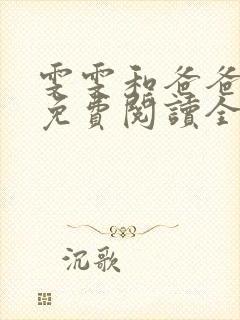 雯雯和爸爸
免費閱讀全
沉歌